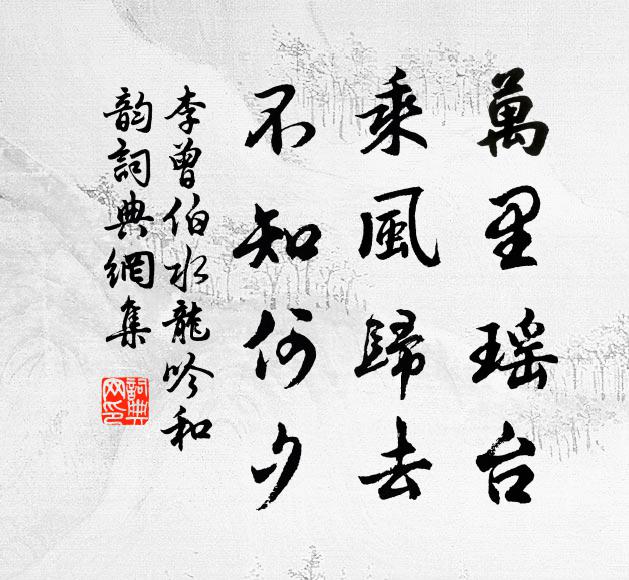 萬里瑶台
乘風歸去
不知何夕
李曾伯水龍吟和
韵詞典網集
詞典網印